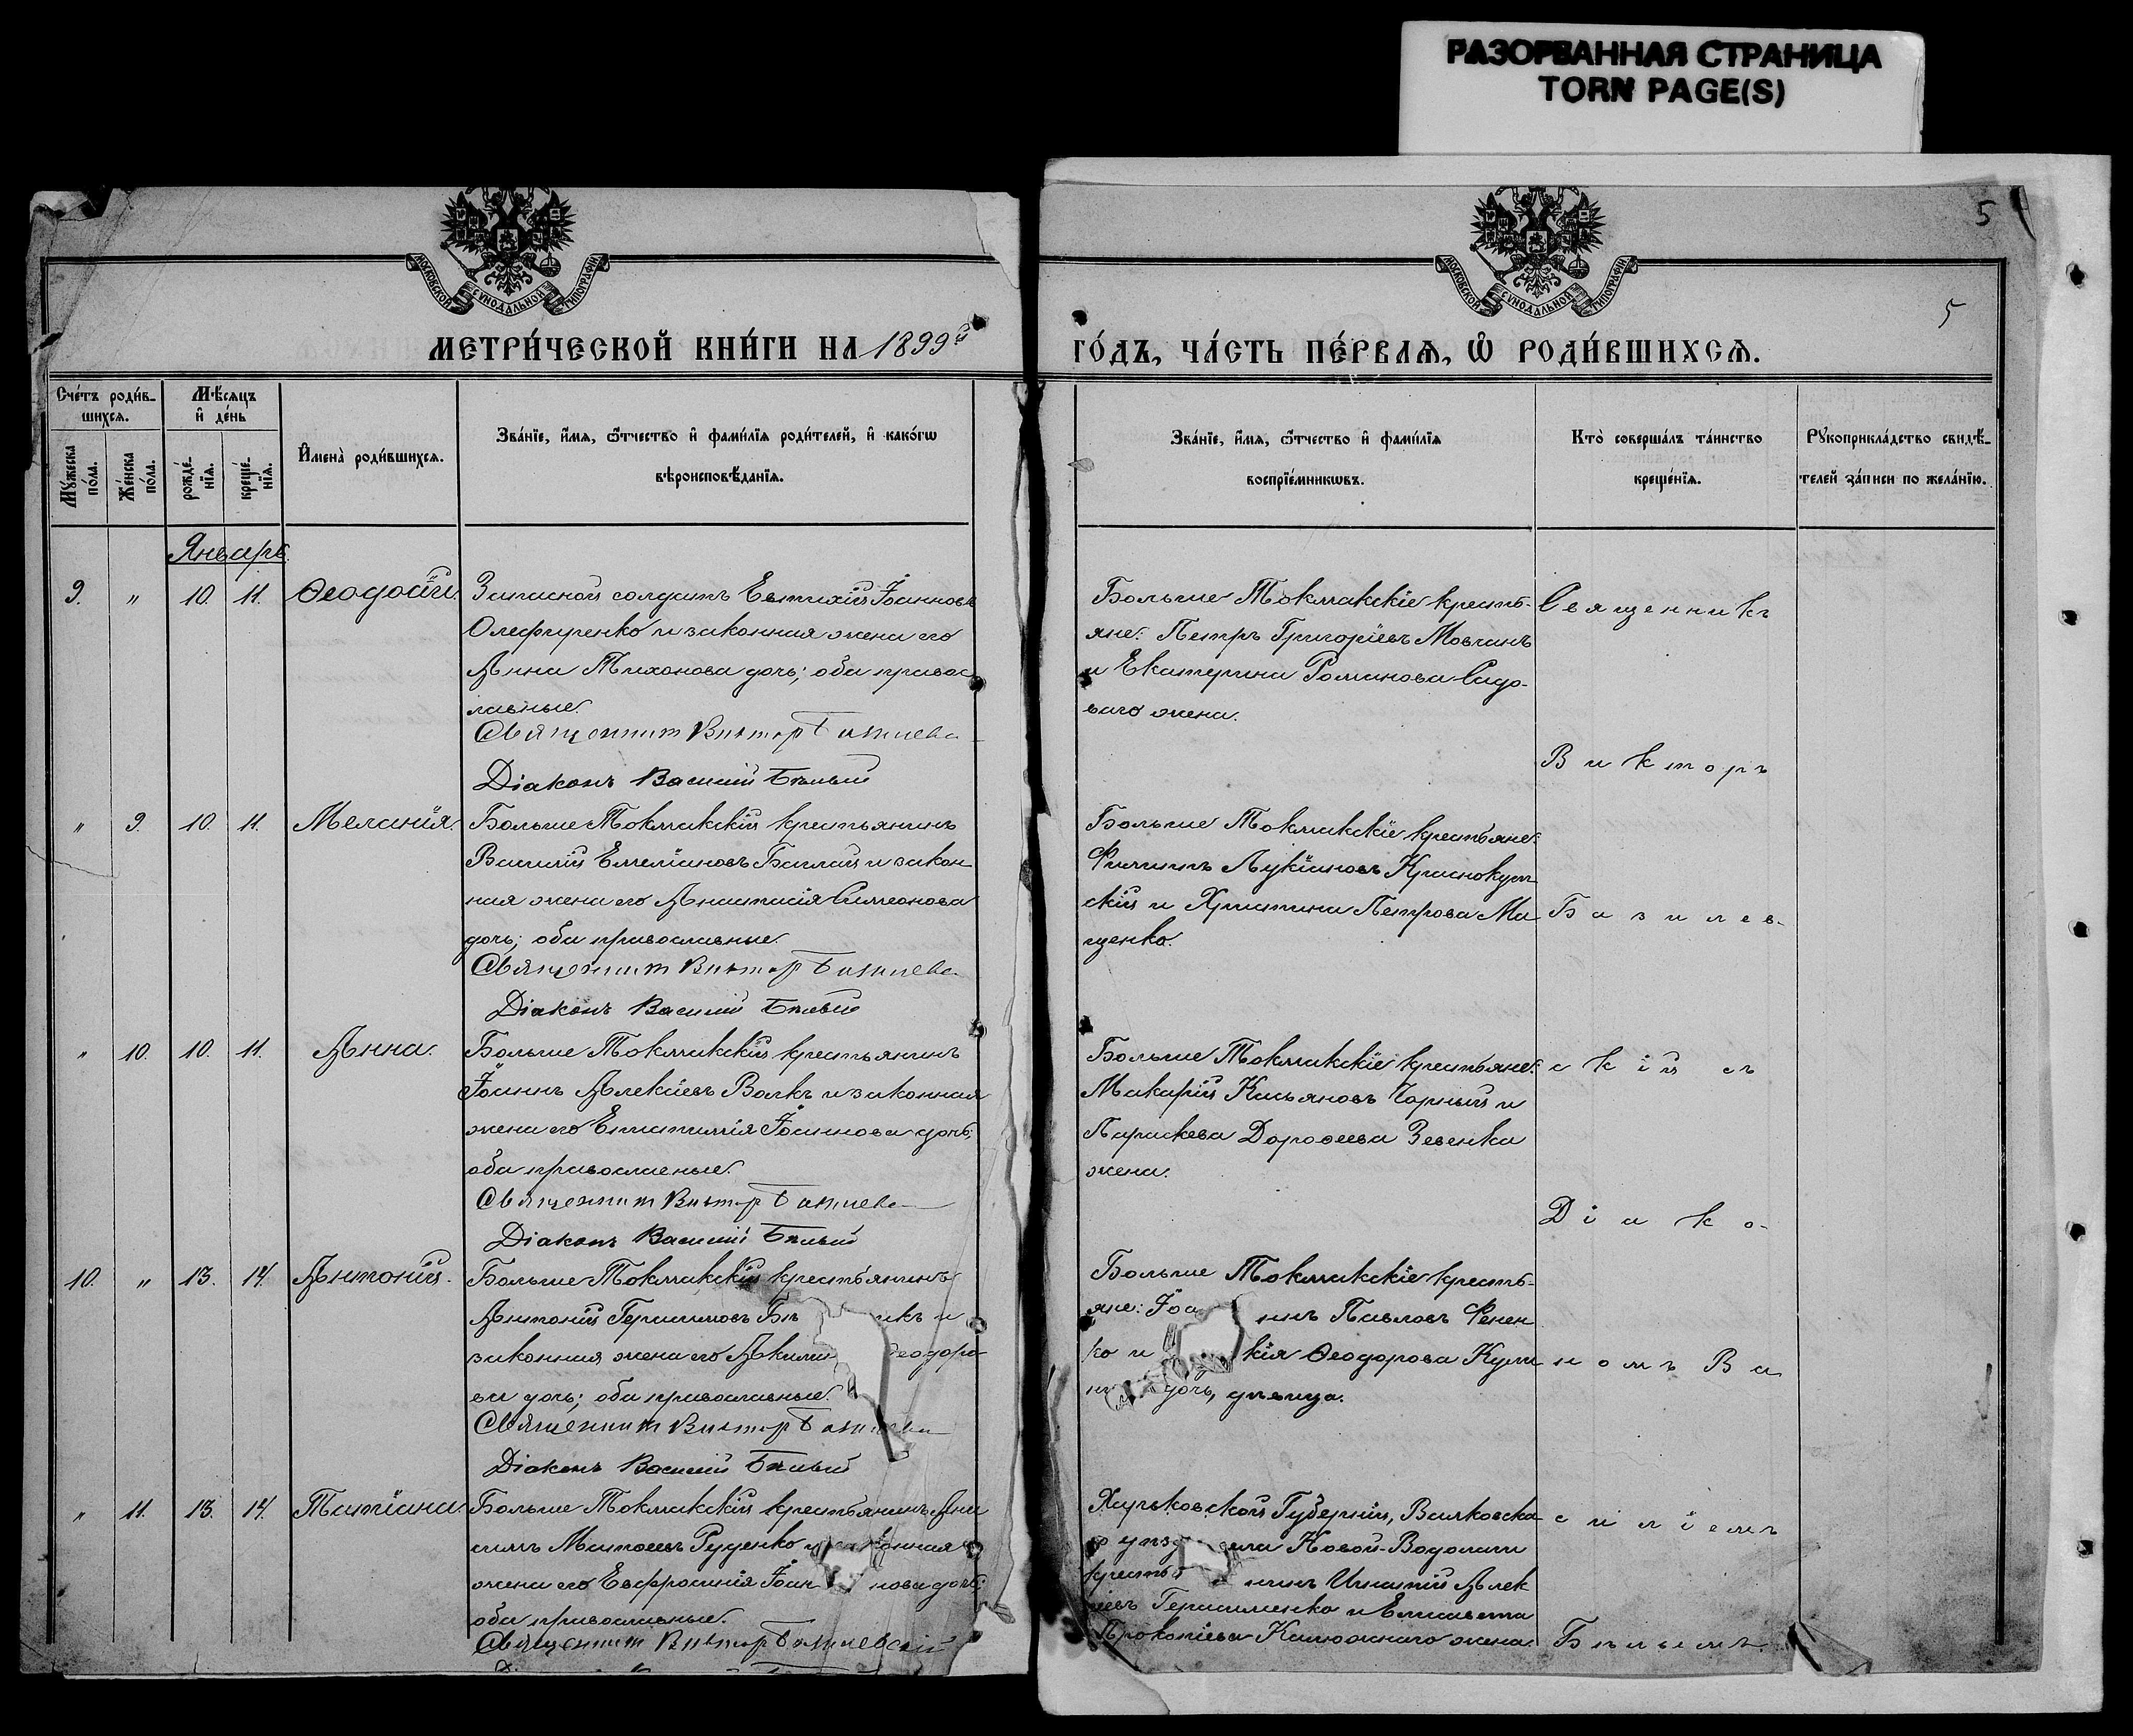 РАЗОРВАННАЯ СТРАНИЦА
TORN PAGE(S)
5
МОСКОВСКОЙ СУНОДАЛЬНОЙ ТИПОГРАФИИ
МОСКОВСКОЙ СУНОДАЛЬНОЙ ТИПОГРАФИИ
5
МЕТРИ́ЧЕСКОЙ КНИ́ГИ НА 1899й
ГО́ДЪ, ЧА́СТЬ ПЕ́РВАѦ, Ѡ РОДИ́ВШИХСѦ.
Сче́тъ роди́в-
шихсѧ.
Мѣ́сѧцъ
и҆ де́нь
Мꙋ́жеска
по́ла.
Же́нска
по́ла.
рожде́-
нїѧ.
креще́-
нїѧ.
И҆мена̀ роди́вшихсѧ.
Зва́нїе, и҆́мѧ, ѻ҆́тчество и҆ фами́лїѧ роди́телей, и҆ како́гѡ
вѣроисповѣ́данїѧ.
Зва́нїе, и҆́мѧ, ѻ҆́тчество и҆ фами́лїѧ
воспрїе́мникѡвъ.
Кто̀ соверша́лъ та́инство
креще́нїѧ.
Рꙋкоприкла́дство свидѣ́-
телей за́писи по жела́нїю.
Январь.
9. " 10. 11. Ѳеодосій.
Запасной солдатъ Евтихій Іоанновъ
Олефиренко и законная жена его
Анна Тихонова дочь; оба правос
лавные.
Священник Виктор Базилевс
Діаконъ Василий Бѣлый
Больше Токмакскіе кресть-
яне: Петръ Григоріевъ Мовчанъ
и Екатерина Романова Садо-
ваго жена.
Священникъ
Викторъ
" 9. 10. 11. Меланія.
Больше Токмакскій крестьянинъ
Василій Емеліановъ Баглай и закон
ная жена его Анастасія Симеонова
дочь; оба православные.
Священник Виктор Базилевс
Діаконъ Василий Бѣлый
Больше Токмакскіе крестьяне:
Филиппъ Лукіановъ Краснокут
скій и Христина Петрова Ма
щенко.
Базилев-
" 10. 10. 11. Анна.
Больше Токмакскій крестьянинъ
Іоаннъ Алексіевъ Волкъ и законная
жена его Епистимія Іоаннова дочь;
оба православные.
Священник Виктор Базилевс
Діаконъ Василий Бѣлый
Больше Токмакскіе крестьяне:
Макарій Касьяновъ Чорный и
Параскева Дороѳеева Зевенка
жена.
скій съ
Діако-
10. " 13. 14. Антоній.
Больше Токмакскій крестьянинъ
Антоній Герасимовъ Бѣ икъ и
законная жена его Акили Ѳеодоро
ва дочь; оба православные.
Священник Виктор Базилевс
Діаконъ Василий Бѣлый
Больше Токмакскіе кресть-
яне: Іоа ннъ Павловъ Фенен
ко и кія Ѳеодорова Кули
дочь, дѣвица.
номъ Ва
" 11. 13. 14. Татіана.
Больше Токмакскій крестьянинъ Ани
симъ Матѳеевъ Руденко и законная
жена его Евфросинія Іоан нова дочь;
оба православные.
Священник Виктор Базилевский
Харьковской Губерніи, Валковска
го уѣзда Новой-Водолаги
кресть нинъ Игнатій Алек
сіевъ Герасименко и Елисавета
Прокопіева Калюжнаго жена.
силіемъ
Бѣлымъ.